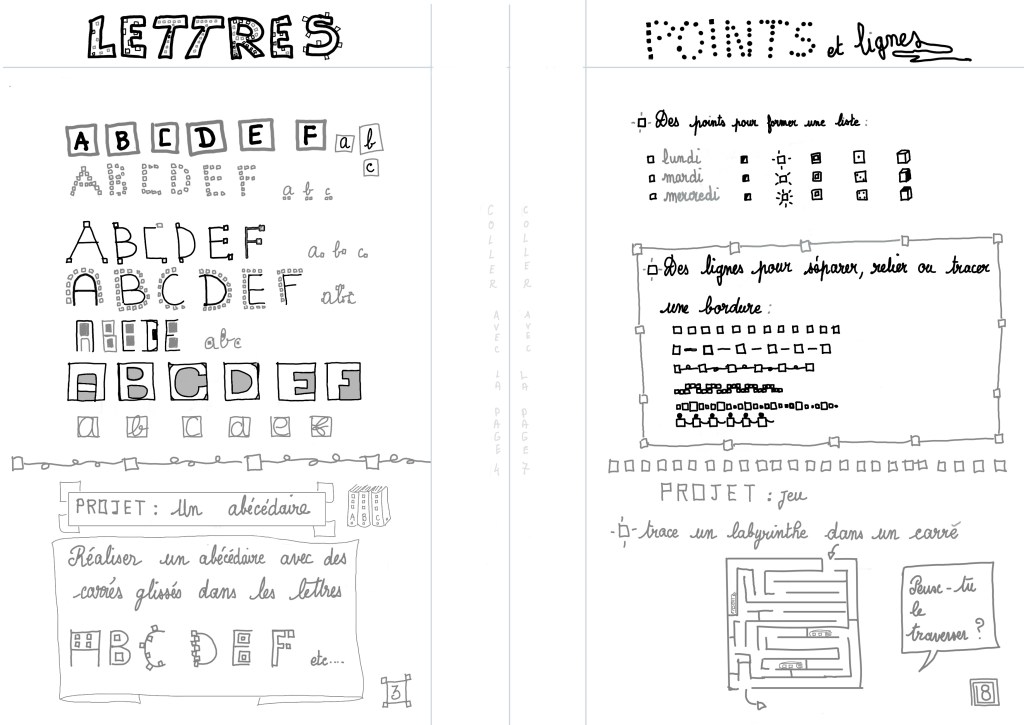 LETTRES
A B C D E F a b
c
A B C D E F a b c
A B C D E F a b c
A B C D E F abc
A B C D E abc
A B C D E F
a b c d e f
PROJET : Un abécédaire
A B C
Réaliser un abécédaire avec des
carrés glissés dans les lettres
A B C D E F etc....
3
COLLER AVEC LA PAGE 4
COLLER AVEC LA PAGE 7
POINTS et lignes
Des points pour former une liste :
lundi
mardi
mercredi
Des lignes pour séparer, relier ou tracer
une bordure :
PROJET : jeu
trace un labyrinthe dans un carré
Peux-tu
le
traverser ?
18